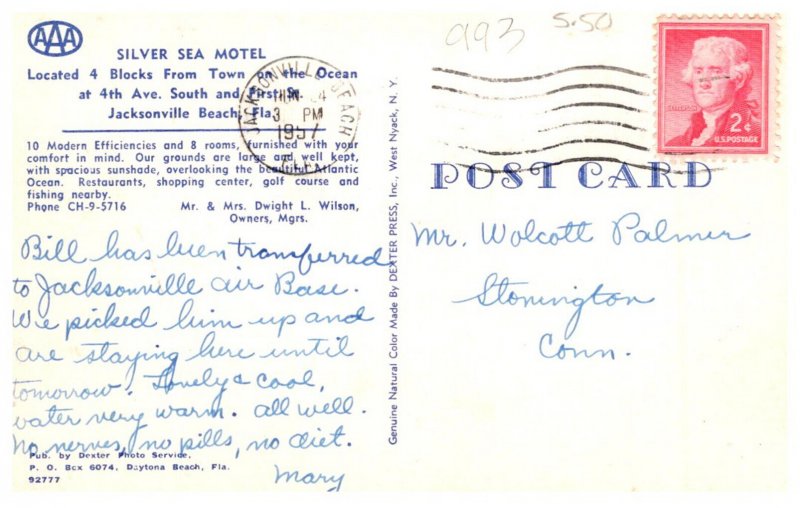 AAA
SILVER SEA MOTEL
Located 4 Blocks From Town on the Ocean
at 4th Ave. South and First St.
Jacksonville Beach, Fla.
10 Modern Efficiencies and 8 rooms, furnished with your
comfort in mind. Our grounds are large and well kept,
with spacious sunshade, overlooking the beautiful Atlantic
Ocean. Restaurants, shopping center, golf course and
fishing nearby.
Phone CH-9-5716 Mr. & Mrs. Dwight L. Wilson,
Owners, Mgrs.
Bill has been transferred
to Jacksonville air Base.
We picked him up and
are staying here until
tomorrow. Lovely & cool,
water very warm. all well.
No nerves, no pills, no diet.
Mary
Pub. by Dexter Photo Service,
P. O. Box 6074, Daytona Beach, Fla.
92777
Genuine Natural Color Made By DEXTER PRESS, Inc., West Nyack, N. Y.
993
5.50
JACKSONVILLE BEACH
3 PM
1957
2¢
U.S. POSTAGE
POST CARD
Mr. Wolcott Palmer
Stonington
Conn.